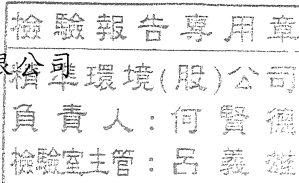 檢驗報告專用章
限公司
精準環境(股)公司
負責人:何賢德
檢驗室主管:呂義雄